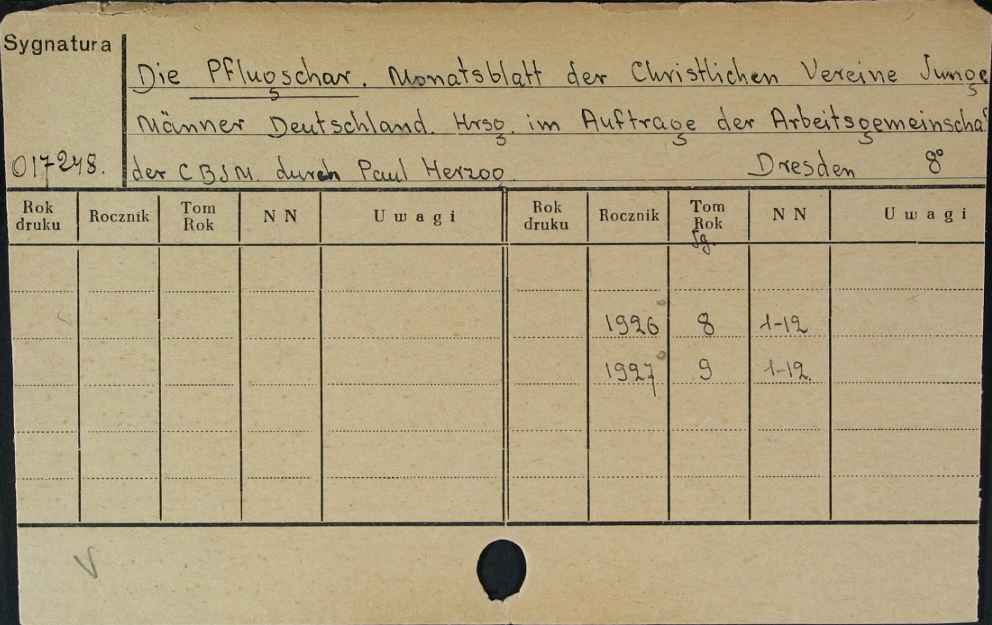 Sygnatura
Die Pflugschar. Monatsblatt der Christlichen Vereine Junge
Männer Deutschland. Hrsg. im Auftrage der Arbeitsgemeinscha
017248. der CBJM. durch Paul Herzog. Dresden 8°
Rok druku Rocznik Tom Rok N N Uwagi Rok druku Rocznik Tom Rok Jg. N N Uwagi
1926 8 1-12
1927 9 1-12.
V